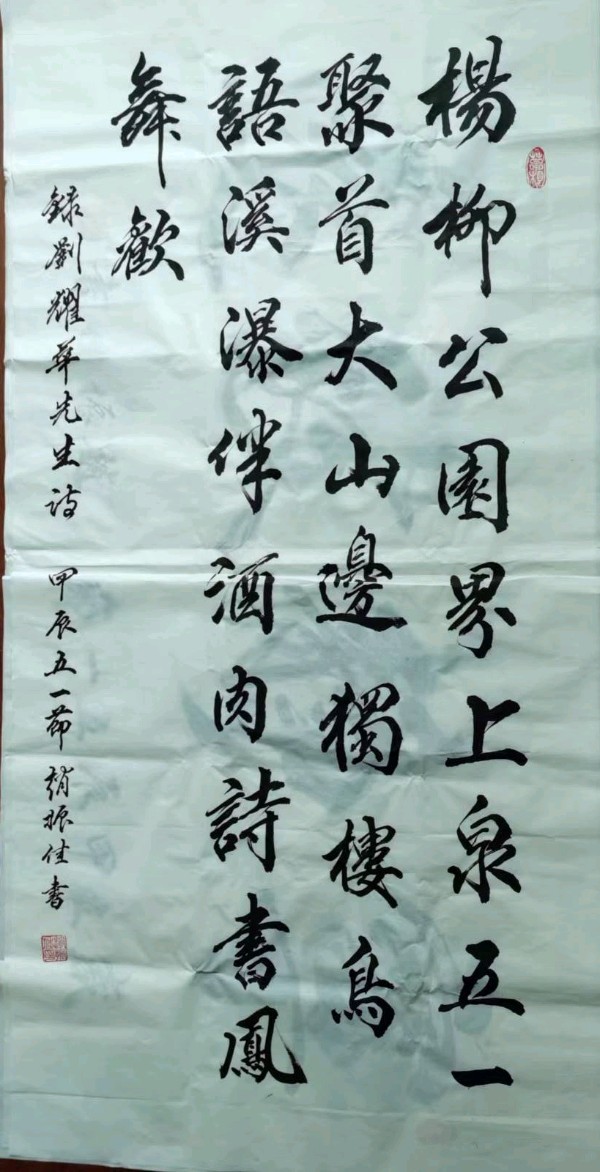 楊柳公園界上泉五一
聚首大山邊獨樓鳥
語溪瀑伴酒肉詩書鳳
舞歡
録劉耀華先生詩 甲辰五一節 趙振佳書